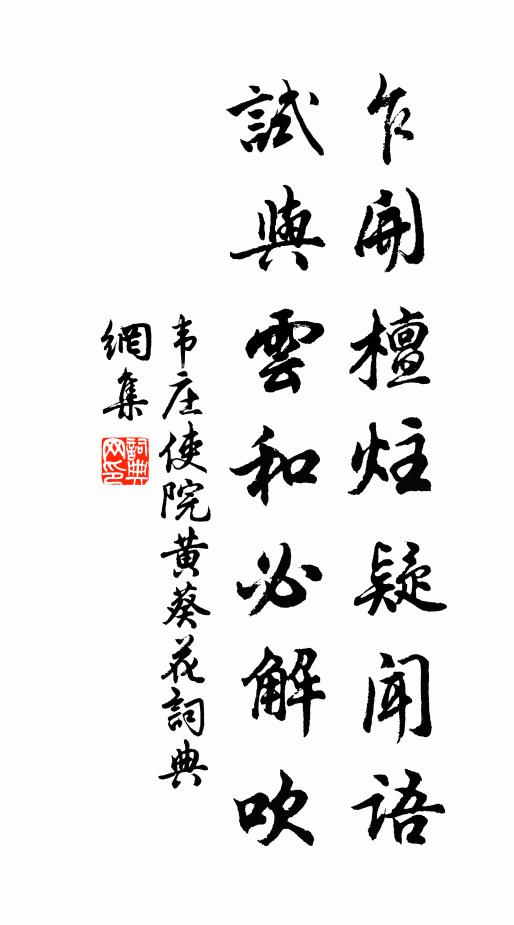 乍開檀炷疑聞語
試與雲和必解吹
韦庄使院黄葵花詞典
網集
詞典网印